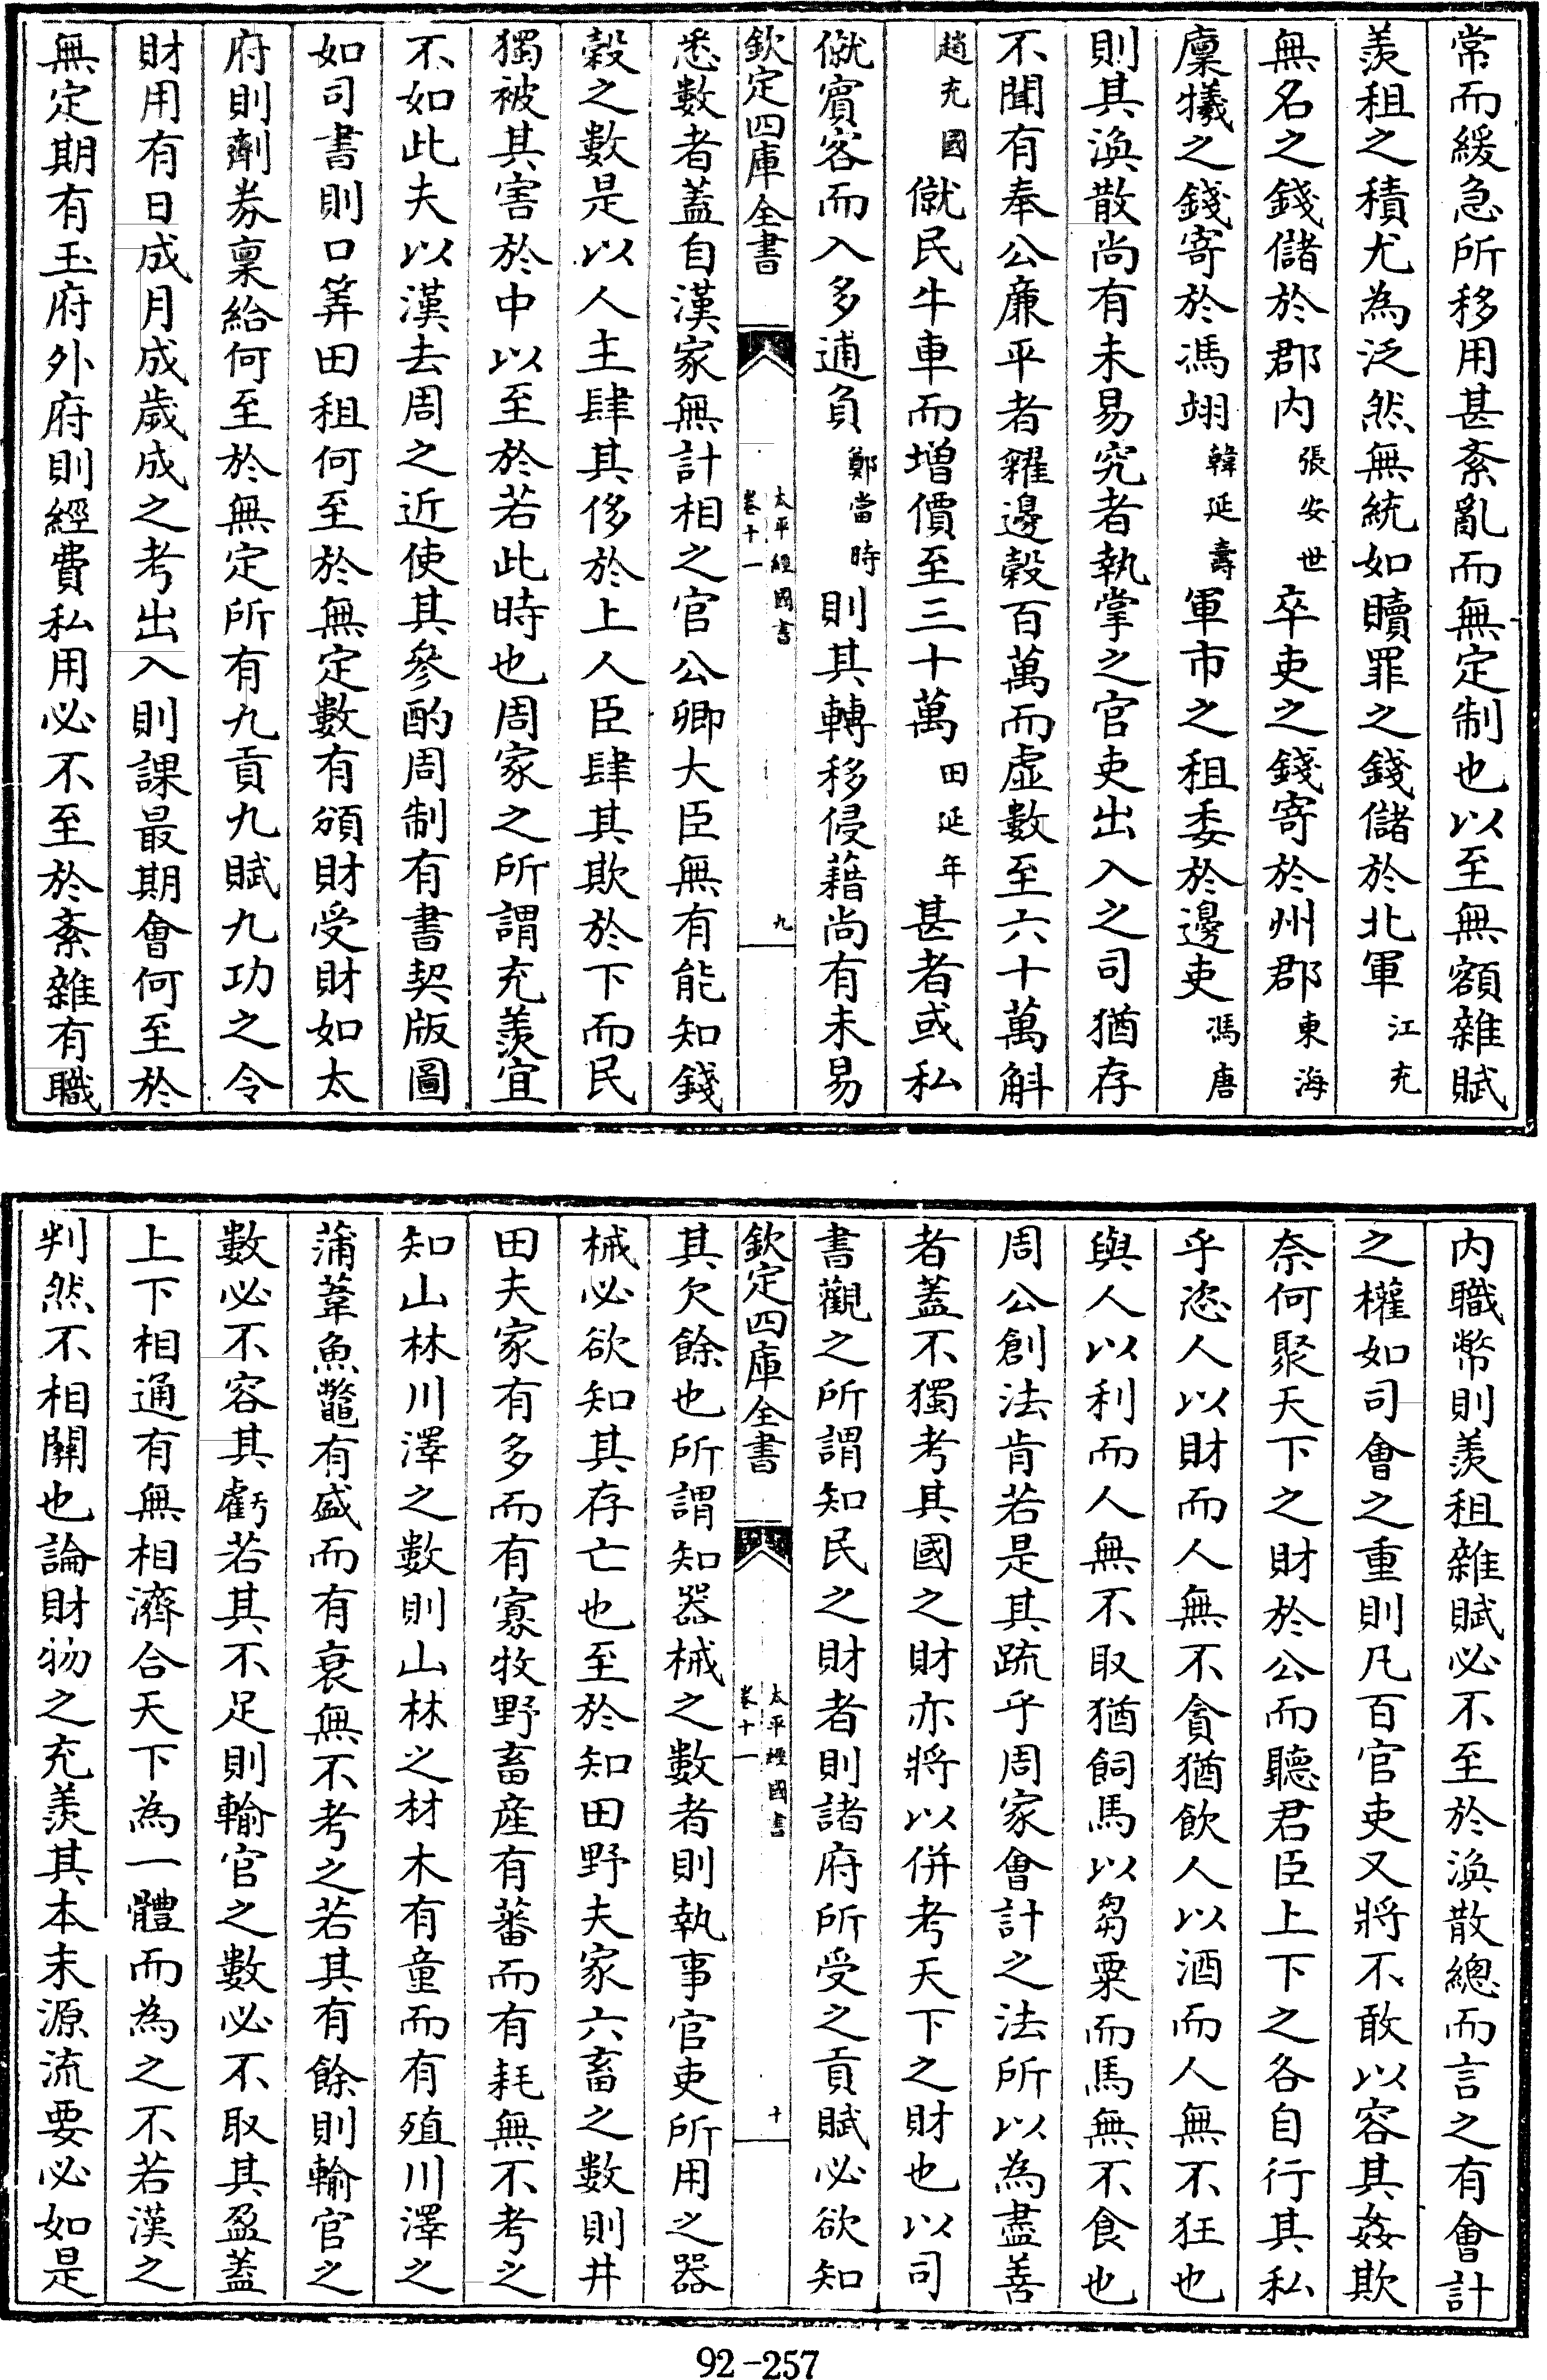 常而緩急所移用甚紊亂而無定制也以至無額雜賦
羨租之積尤為泛然無統如贖罪之錢儲於北軍江充
無名之錢儲於郡内張安世卒吏之錢寄於州郡東海
廩犧之錢寄於馮翊韓延壽軍市之租委於邊吏馮唐
則其渙散尚有未易究者執掌之官吏出入之司猶存
不聞有奉公廉平者糴邊榖百萬而虛數至六十萬斛
趙充國僦民牛車而增價至三十萬田延年甚者或私
僦賓客而入多逋負鄭當時則其轉移侵藉尚有未易
欽定四庫全書
太平經國書
卷十一
九
悉數者蓋自漢家無計相之官公卿大臣無有能知錢
榖之數是以人主肆其侈於上人臣肆其欺於下而民
獨被其害於中以至於若此時也周家之所謂充羨宜
不如此夫以漢去周之近使其參酌周制有書契版圖
如司書則口筭田租何至於無定數有頒財受財如太
府則劑券稟給何至於無定所有九貢九賦九功之令
財用有日成月成歲成之考出入則課最期會何至於
無定期有玉府外府則經費私用必不至於紊雜有職
内職幣則羨租雜賦必不至於渙散總而言之有會計
之權如司會之重則凡百官吏又將不敢以容其姦欺
奈何聚天下之財於公而聽君臣上下之各自行其私
乎恣人以財而人無不貪猶飲人以酒而人無不狂也
與人以利而人無不取猶飼馬以芻粟而馬無不食也
周公創法肯若是其疏乎周家會計之法所以為盡善
者蓋不獨考其國之財亦將以併考天下之財也以司
書觀之所謂知民之財者則諸府所受之貢賦必欲知
欽定四庫全書
太平經國書
卷十一
十
其欠餘也所謂知器械之數者則執事官吏所用之器
械必欲知其存亡也至於知田野夫家六畜之數則井
田夫家有多而有寡牧野畜産有蕃而有耗無不考之
知山林川澤之數則山林之材木有童而有殖川澤之
蒲葦魚鼈有盛而有衰無不考之若其有餘則輸官之
數必不容其虧若其不足則輸官之數必不取其盈蓋
上下相通有無相濟合天下為一體而為之不若漢之
判然不相關也論財物之充羨其本末源流要必如是
92-257